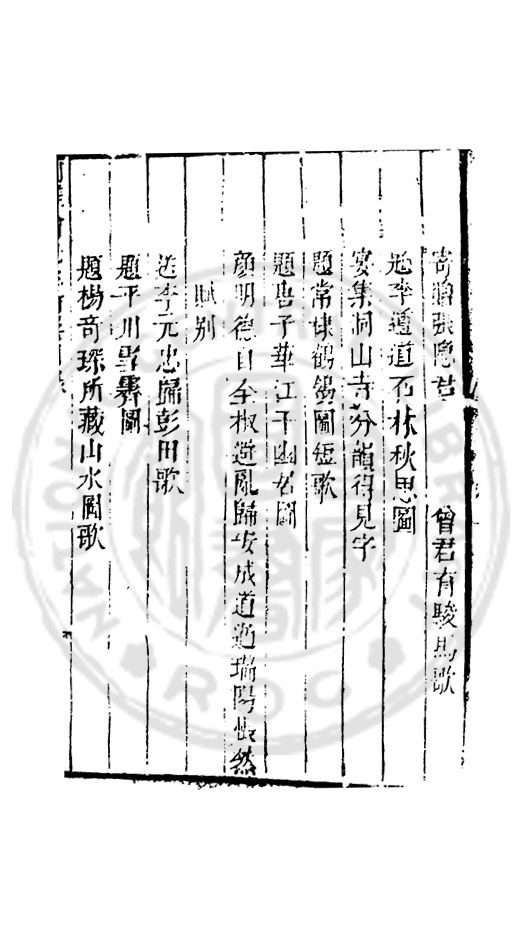 寄贈張隱君 曾君有駿馬歌
題李遵道石林秋思圖
宴集洞山寺分韻得見字
題常 鶴 圖短歌
題唐子華江千幽居圖
顏明德自全椒避亂歸安成道過瑞陽悵然
賦别
送李元忠歸彭田歌
題平川雪霽圖
題楊奇琛所藏山水圖歌